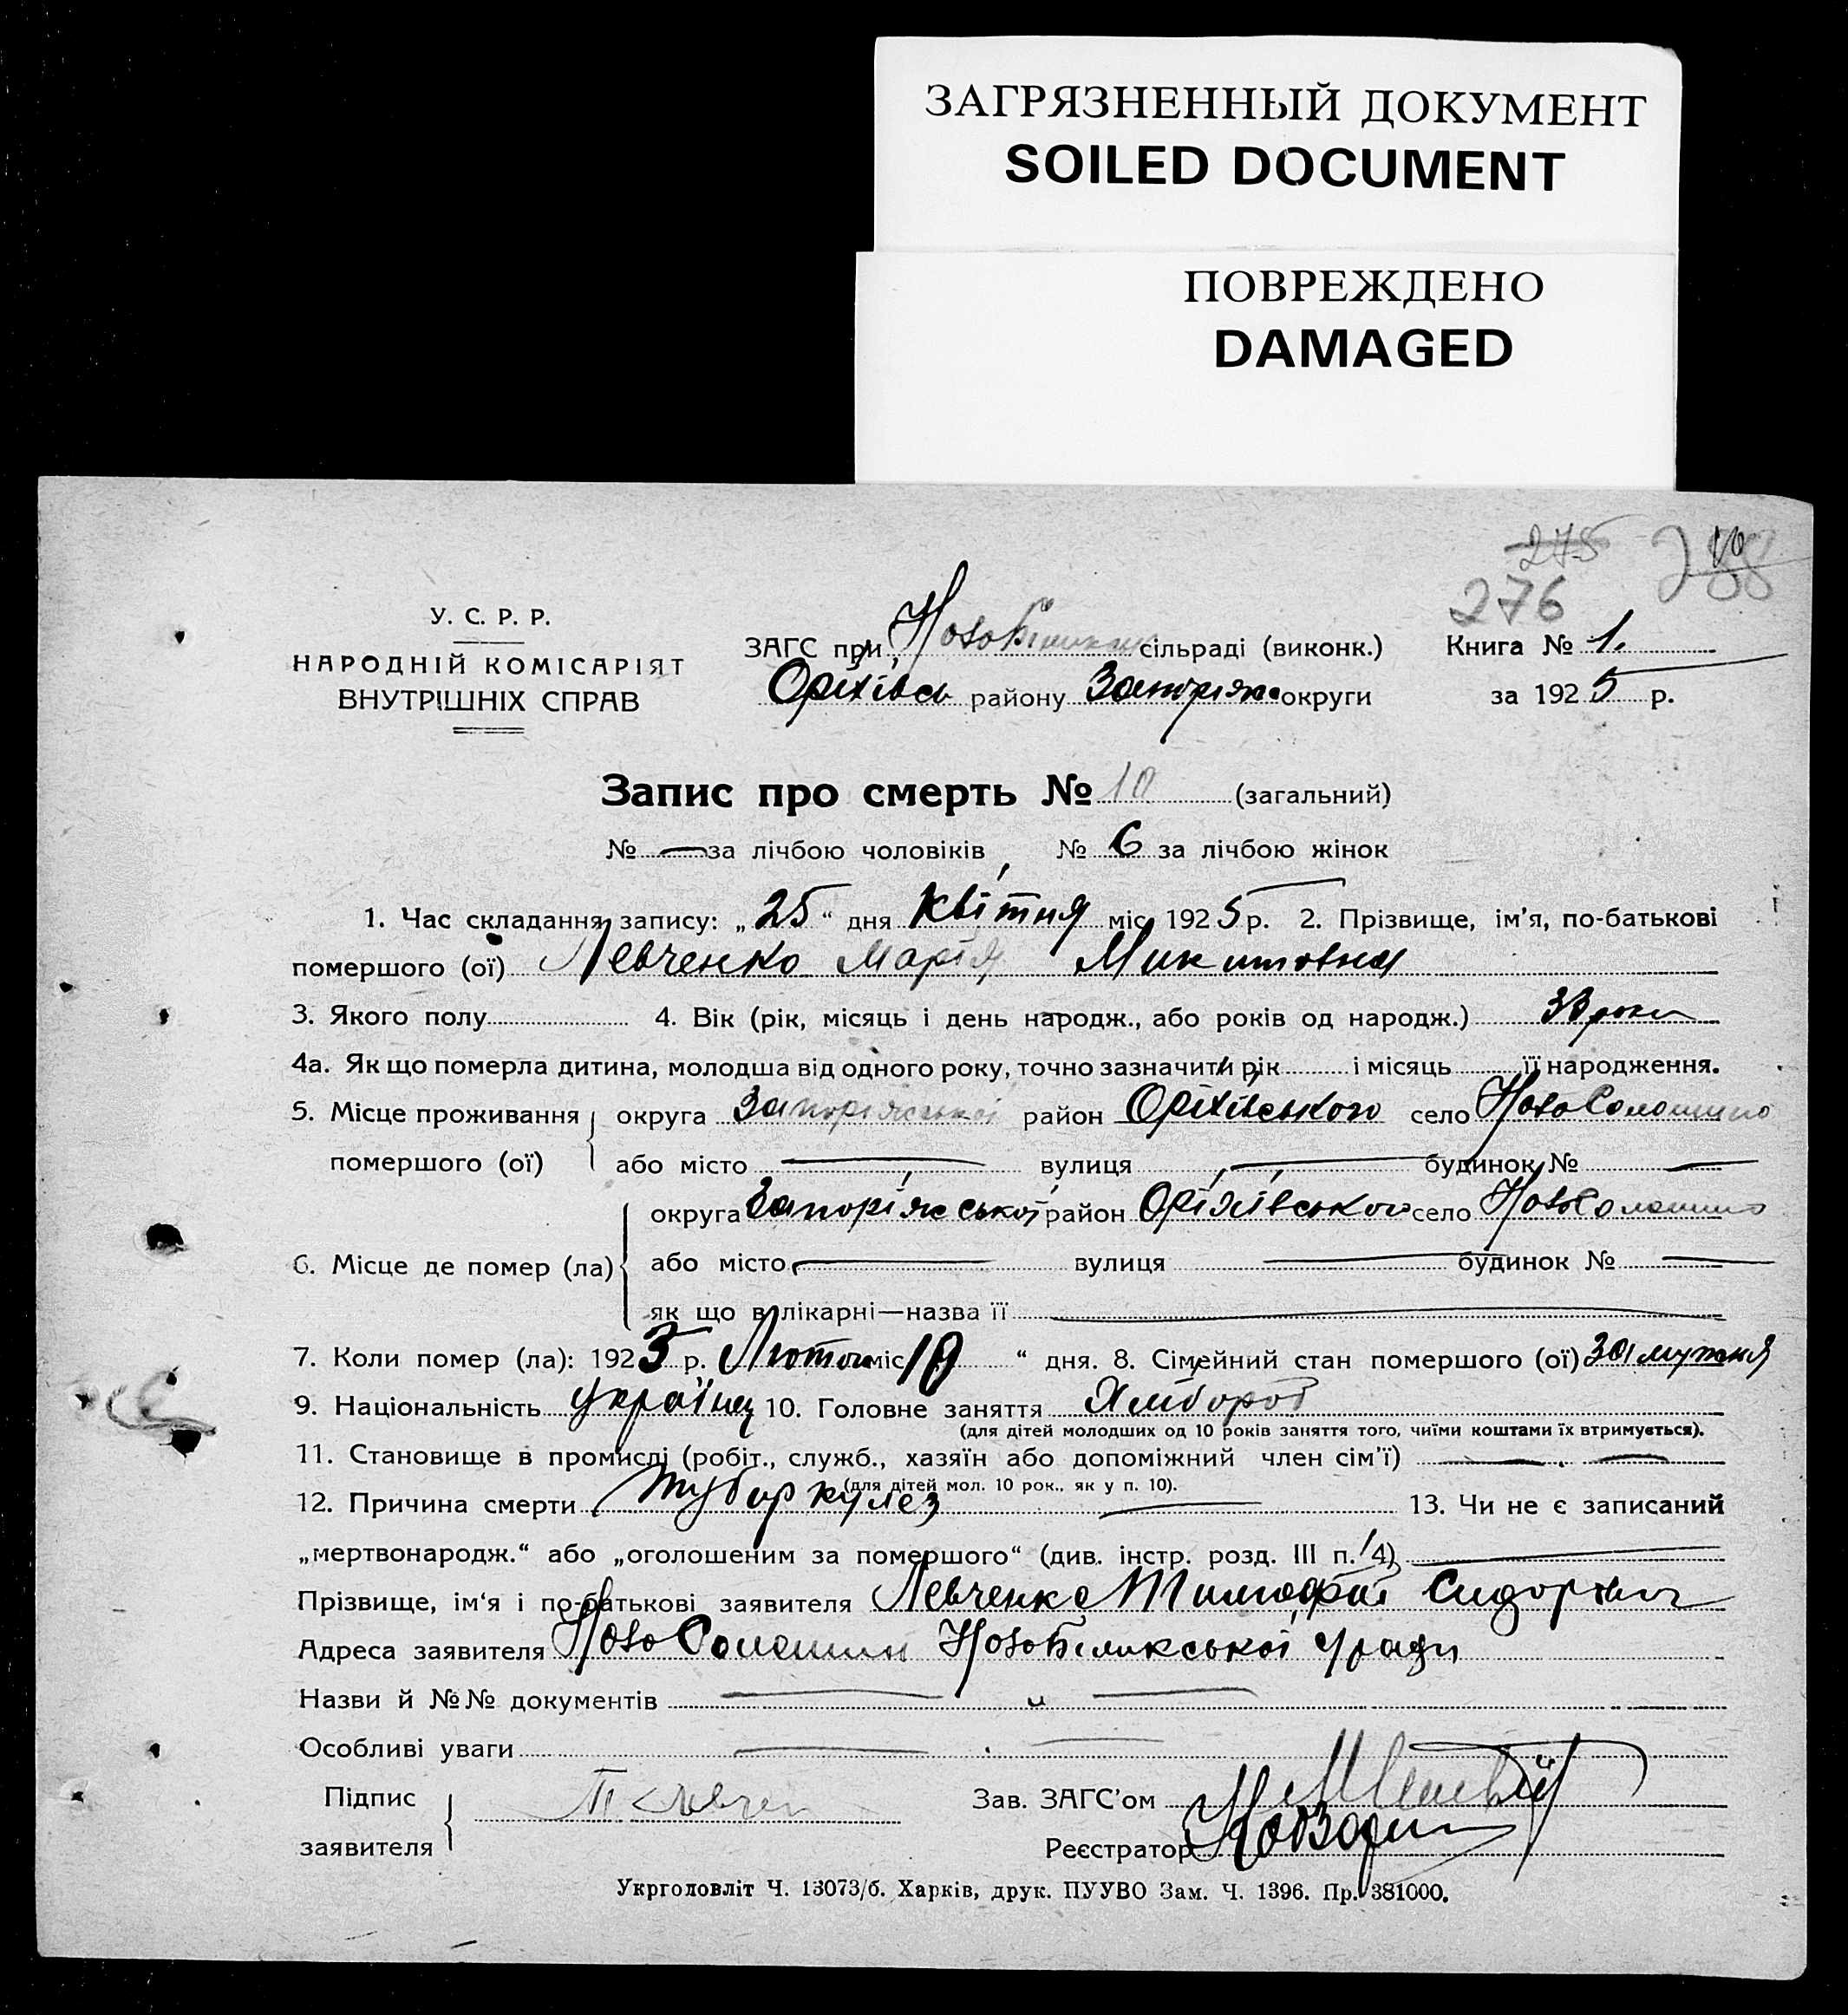 ЗАГРЯЗНЕННЫЙ ДОКУМЕНТ
SOILED DOCUMENT
ПОВРЕЖДЕНО
DAMAGED
275
276
У. С. Р. Р.
НАРОДНІЙ КОМІСАРІЯТ
ВНУТРІШНІХ СПРАВ
ЗАГС при сільраді (виконк.)
Оріхівсь району Запоріж округи
Книга № 1.
за 1925 р.
Запис про смерть № 10 (загальний)
№ — за лічбою чоловіків, № 6 за лічбою жінок
1. Час складання запису: „25“ дня Квітня міс 1925 р. 2. Прізвище, ім'я, по-батькові
помершого (ої) Левченко Марія Микитовна
3. Якого полу 4. Вік (рік, місяць і день народж., або років од народж.) 33 роки
4а. Як що померла дитина, молодша від одного року, точно зазначити рік і місяць її народження.
5. Місце проживання помершого (ої) округа Запоріжської район Оріхівського село
або місто — вулиця — будинок № —
6. Місце де помер (ла) округа Запоріжської район Оріхівського село
або місто — вулиця — будинок № —
як що в лікарні—назва її —
7. Коли помер (ла): 1925 р. Лютого міс „ “ дня. 8. Сімейний стан помершого (ої) замужня
9. Національність україн 10. Головне заняття Хлібороб
(для дітей молодших од 10 років заняття того, чиїми коштами їх втримується).
11. Становище в промислі (робіт., служб., хазяїн або допоміжний член сім'ї) —
(для дітей мол. 10 рок., як у п. 10).
12. Причина смерти Туберкулез — 13. Чи не є записаний
„мертвонародж.“ або „оголошеним за помершого“ (див. інстр. розд. III п. 14) —
Прізвище, ім'я і по-батькові заявителя Левченко Тимофій Сидорович
Адреса заявителя Ново Нової ської с/ради
Назви й №№ документів — " —
Особливі уваги —
Підпис
заявителя
Зав. ЗАГС'ом
Реєстратор
Укрголовліт Ч. 13073/б. Харків, друк. ПУУВО Зам. Ч. 1396. Пр. 381000.